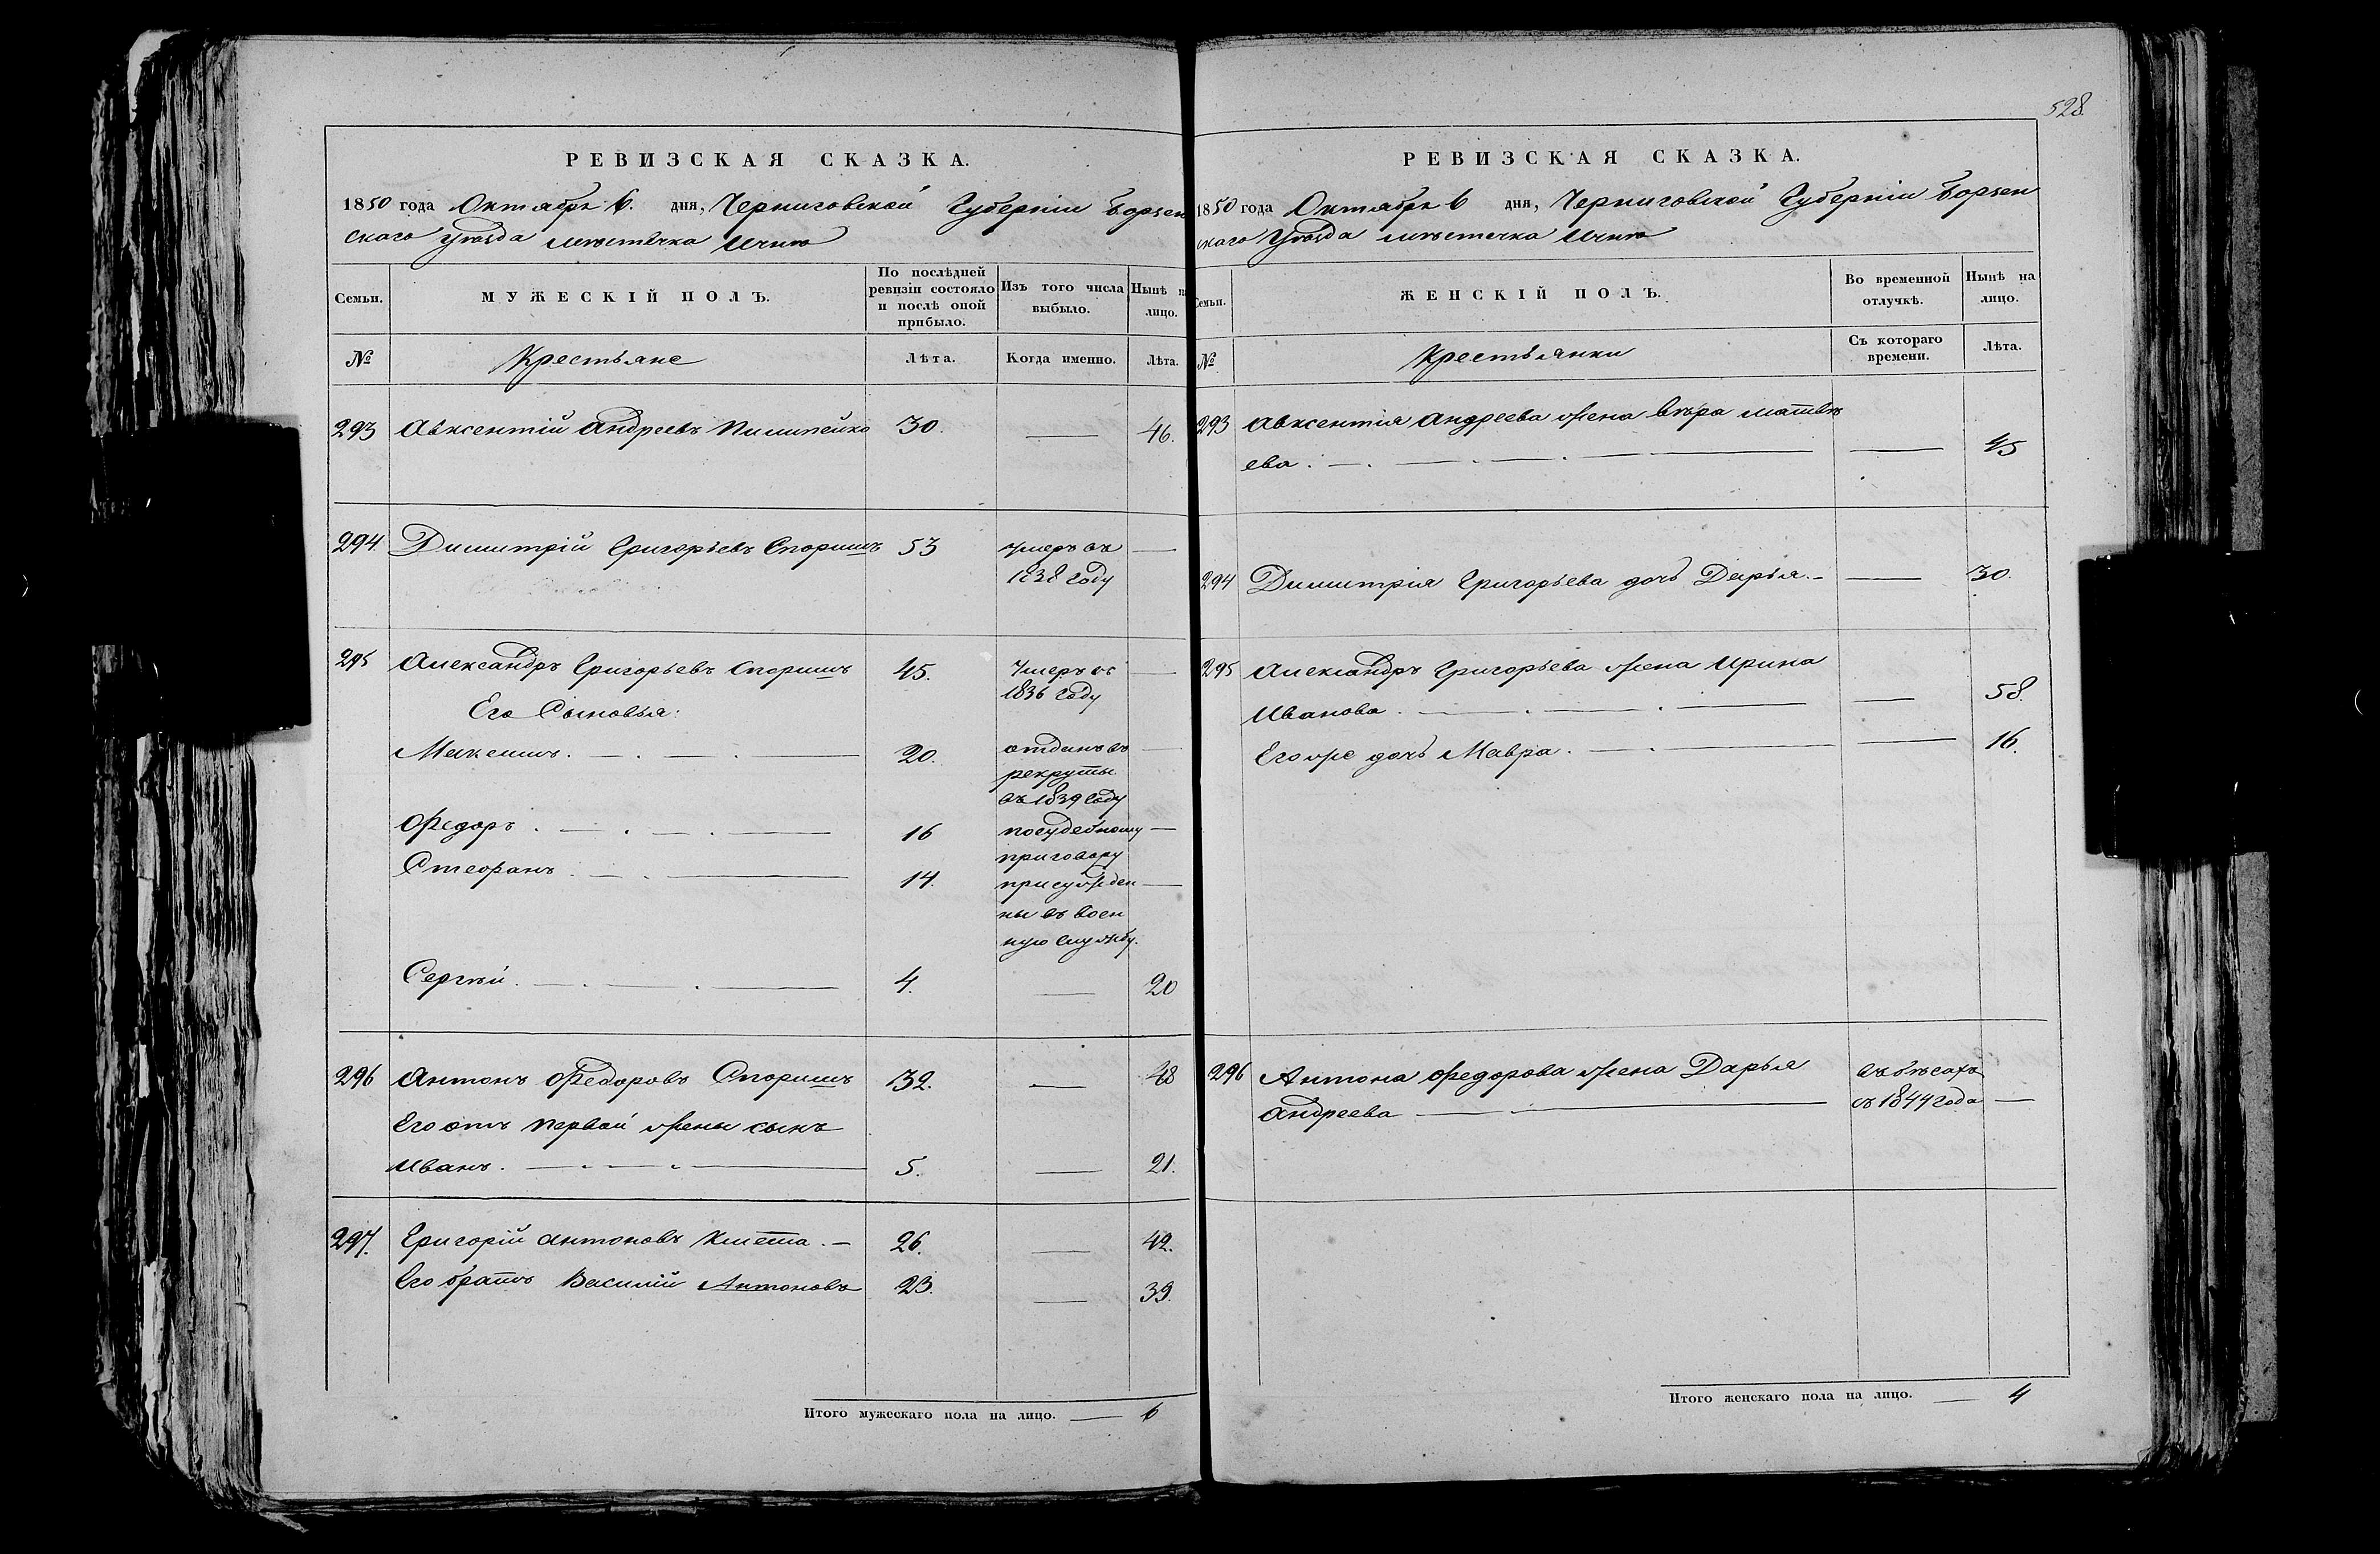 РЕВИЗСКАЯ СКАЗКА.
1850 года Октября 6. дня, Черниговской Губерніи Борзен
скаго уѣзда мѣстечка Ични
Семьи.
МУЖЕСКІЙ ПОЛЪ.
По послѣдней ревизіи состояло и послѣ оной прибыло.
Изъ того числа выбыло.
Нынѣ на лицо.
№
Крестьяне
Лѣта.
Когда именно.
Лѣта.
293 Авксентій Андреевъ Пилипейко 30. — 46.
294. Димитрій Григорьевъ Споришъ 53 умеръ въ —
1838 году
295 Александръ Григорьевъ Споришъ 45. Умеръ въ —
1836 году
Его Сыновья:
Максимъ. 20. отданъ въ —
рекруты
въ 1839 году
Ѳедоръ. 16 посудебному —
приговору
Стефанъ. 14. присужден —
ны въ воен
ную службу.
Сергѣй. 4. — 20
296 Антонъ Ѳедоровъ Споришъ 32. — 48
Его отъ первой жены сынъ
Иванъ. 5. — 21.
297. Григорій Антоновъ Кмета. — 26. — 42.
Его братъ Василій Антоновъ 23. — 39.
Итого мужескаго пола на лицо. — 6
528
РЕВИЗСКАЯ СКАЗКА.
1850 года Октября 6 дня, Черниговской Губерніи Борзен
скаго Уѣзда мѣстечка Ични
Семьи.
ЖЕНСКІЙ ПОЛЪ.
Во временной отлучкѣ.
Нынѣ на лицо.
№
Крестьянки
Съ котораго времени.
Лѣта.
293 Авксентія Андреева жена Вѣра Матвѣ
ева. — 45
294 Димитрія Григорьева дочь Дарья. — 30.
295 Александръ Григорьева жена Ирина
Иванова. — 58.
Егоже дочь Мавра. — 16.
296 Антона Ѳедорова жена Дарья въ бѣгахъ
Андреева — съ 1844 года —
Итого женскаго пола на лицо. — 4